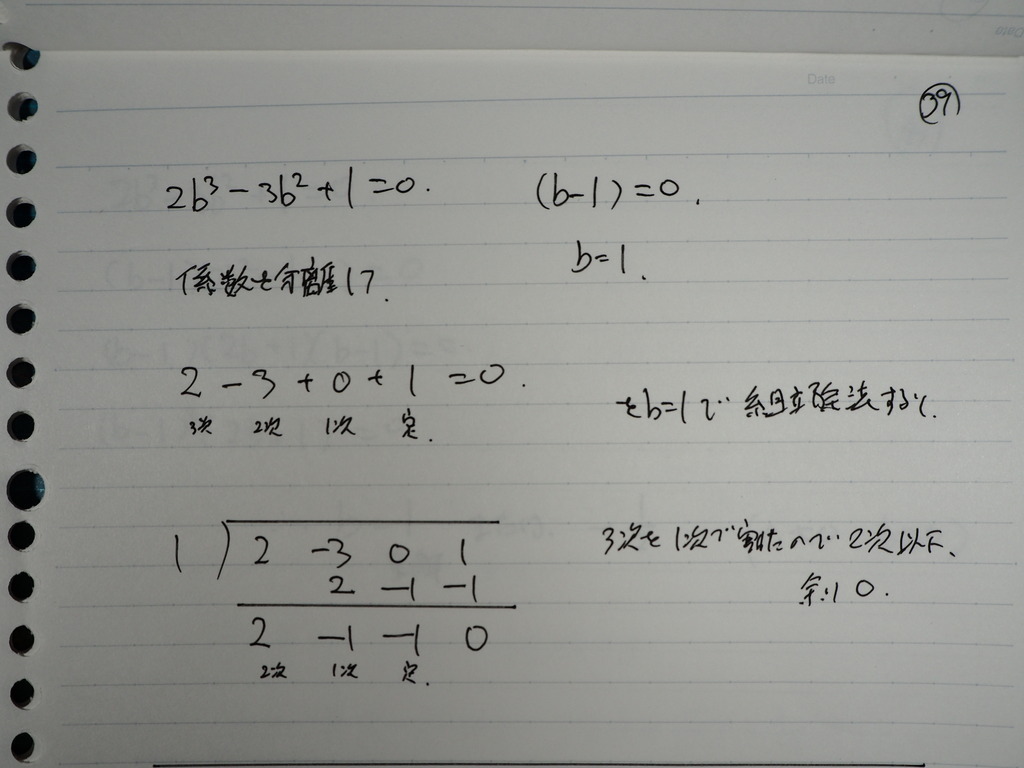 Date
39
2b³ - 3b² + 1 = 0.
(b-1) = 0.
b=1.
係数を分離して.
2 - 3 + 0 + 1 = 0.
3次 2次 1次 定.
をb=1で組立除法すると.
1 ) 2 -3 0 1
2 -1 -1
2 -1 -1 0
2次 1次 定.
3次を1次で割たので2次以下、
余り 0.